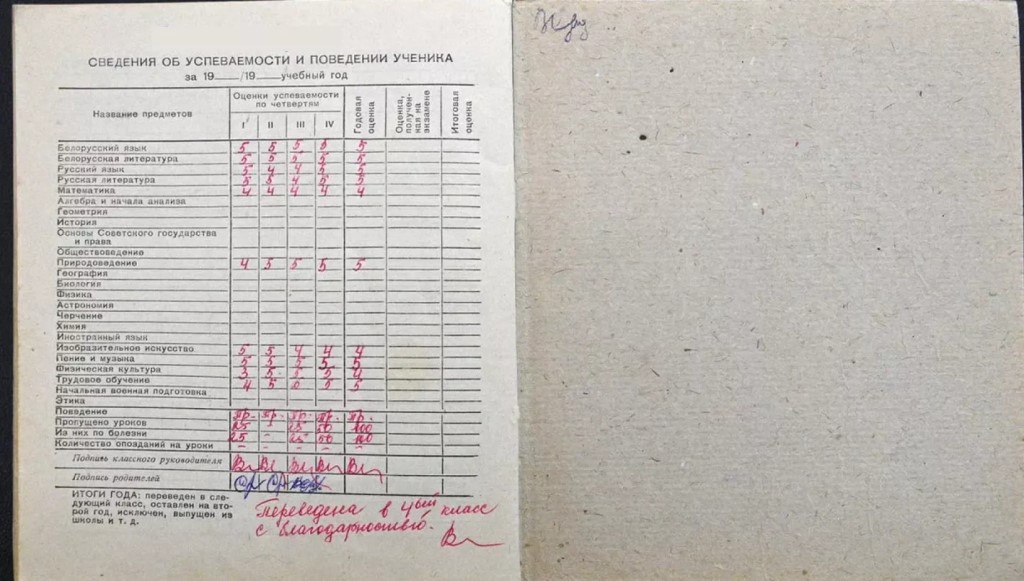 СВЕДЕНИЯ ОБ УСПЕВАЕМОСТИ И ПОВЕДЕНИИ УЧЕНИКА
за 19___/19___учебный год
Название предметов
Оценки успеваемости
по четвертям
I II III IV
Годовая
оценка
Оценка,
получен-
ная на
экзамене
Итоговая
оценка
Белорусский язык 5 5 5 5 5
Белорусская литература 5 5 5 5 5
Русский язык 5 4 4 5 5
Русская литература 5 5 4 5 5
Математика 4 4 4 4 4
Алгебра и начала анализа
Геометрия
История
Основы Советского государства
и права
Обществоведение
Природоведение 4 5 5 5 5
География
Биология
Физика
Астрономия
Черчение
Химия
Иностранный язык
Изобразительное искусство 5 5 4 4 4
Пение и музыка 5 5 5 5 5
Физическая культура 3 5 5 5 4
Трудовое обучение 4 5 5 5
Начальная военная подготовка
Этика
Поведение пр. пр. пр. пр. пр.
Пропущено уроков 25 - 25 50 100
Из них по болезни 25 - 25 50 100
Количество опозданий на уроки - - - - -
Подпись классного руководителя
Подпись родителей
ИТОГИ ГОДА: переведен в сле-
дующий класс, оставлен на вто-
рой год, исключен, выпущен из
школы и т. д.
Переведена в 4ый класс
с благодарностью.